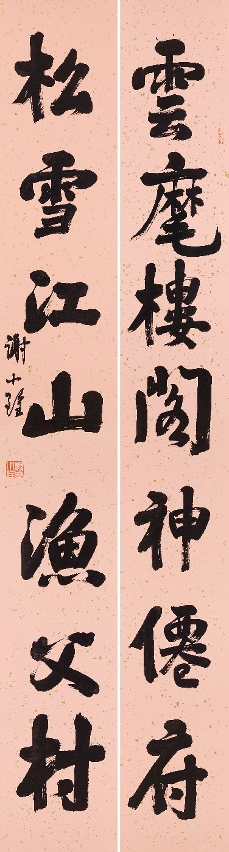 雲麾樓閣神僊府
松雪江山漁父村
謝小韞